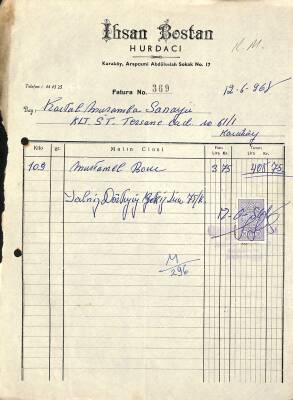 İhsan Bostan
HURDACI
Karaköy, Arapcami Abdüsselah Sokak No. 17
K. M.
Telefon : 44 45 25
Fatura No. 369
12-6-968
Bay:
Kartal Muşamba Sanayii
KLT. ŞT. Tersane Cad. no 61/1
Karaköy
Kilo gr. Malın Cinsi Fiatı Lira Kr. Tutarı Lira Kr.
109 Mustamel Boru 3 75 408 75
Yalnız Dörtyüz Sekiz Lira 75 Kr.
12-6-968
M/296